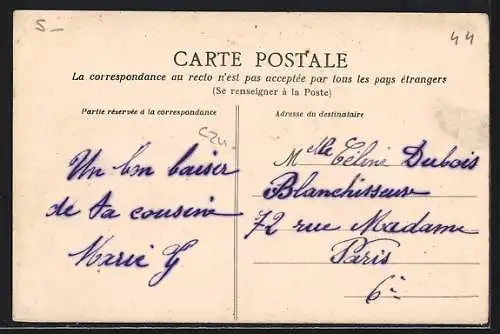 5_
44
CARTE POSTALE
La correspondance au recto n'est pas acceptée par tous les pays étrangers
(Se renseigner à la Poste)
Partie réservée à la correspondance
Un bon baiser
de ta cousine
Marie G
Adresse du destinataire
Mlle Céline Dubois
Blanchisseuse
72 rue Madame
Paris
6e